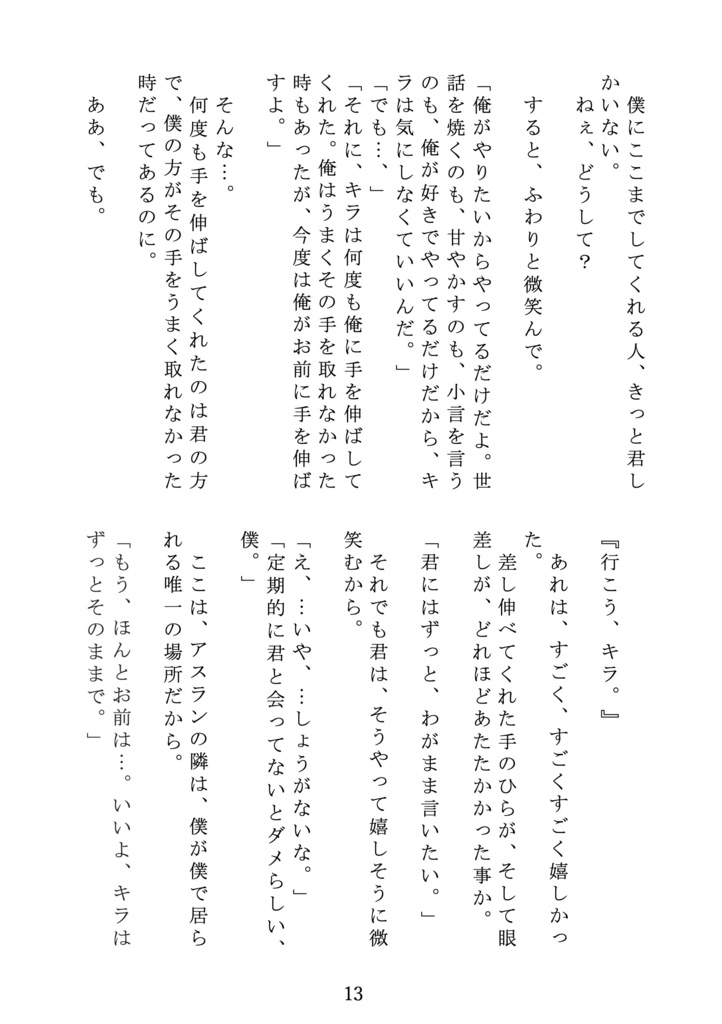 僕にここまでしてくれる人、きっと君し
かいない。
ねぇ、どうして？
すると、ふわりと微笑んで。
「俺がやりたいからやってるだけだよ。世
話を焼くのも、甘やかすのも、小言を言う
のも、俺が好きでやってるだけだから、キ
ラは気にしなくていいんだ。」
「でも…、」
「それに、キラは何度も俺に手を伸ばして
くれた。俺はうまくその手を取れなかった
時もあったが、今度は俺がお前に手を伸ば
すよ。」
そんな…。
何度も手を伸ばしてくれたのは君の方
で、僕の方がその手をうまく取れなかった
時だってあるのに。
ああ、でも。
『行こう、キラ。』
あれは、すごく、すごくすごく嬉しかっ
た。
差し伸べてくれた手のひらが、そして眼
差しが、どれほどあたたかかった事か。
「君にはずっと、わがまま言いたい。」
それでも君は、そうやって嬉しそうに微
笑むから。
「え、…いや、…しょうがないな。」
「定期的に君と会ってないとダメらしい、
僕。」
ここは、アスランの隣は、僕が僕で居ら
れる唯一の場所だから。
「もう、ほんとお前は…。いいよ、キラは
ずっとそのままで。」
13